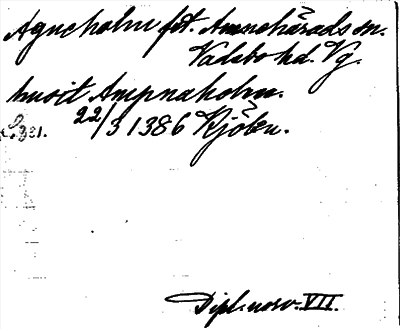 Agneholm fst. Amnehärads sn.
Vadsbo hd. Vg.
huset Ampnaholm.
22/3 1386 Kjöbn.
Dipl. norv. VII.